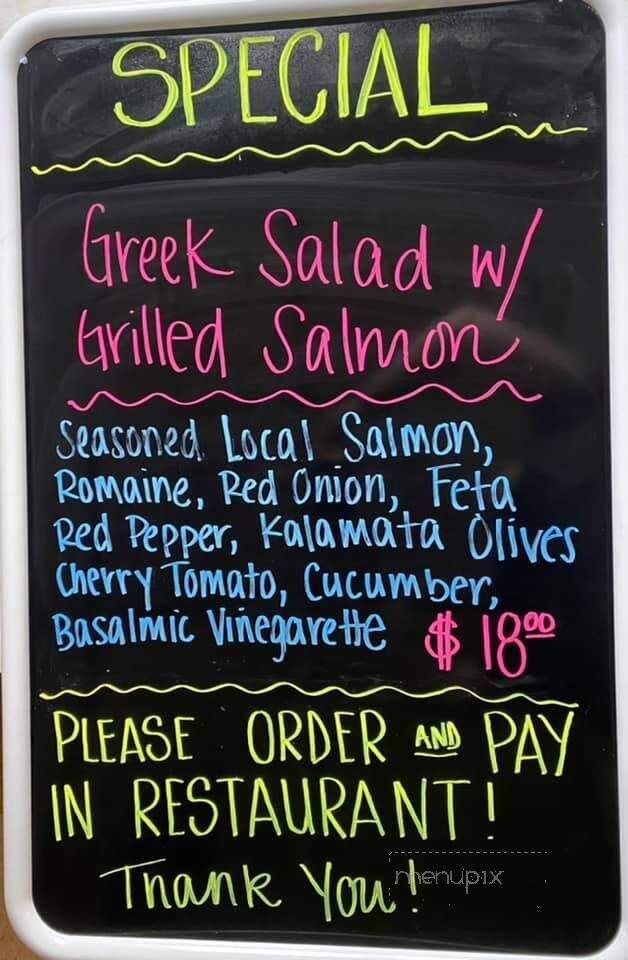 SPECIAL
Greek Salad w/
Grilled Salmon
Seasoned Local Salmon,
Romaine, Red Onion, Feta
Red Pepper, Kalamata Olives
Cherry Tomato, Cucumber,
Basalmic Vinegarette $18.00
PLEASE ORDER AND PAY
IN RESTAURANT!
Thank You!
menupix